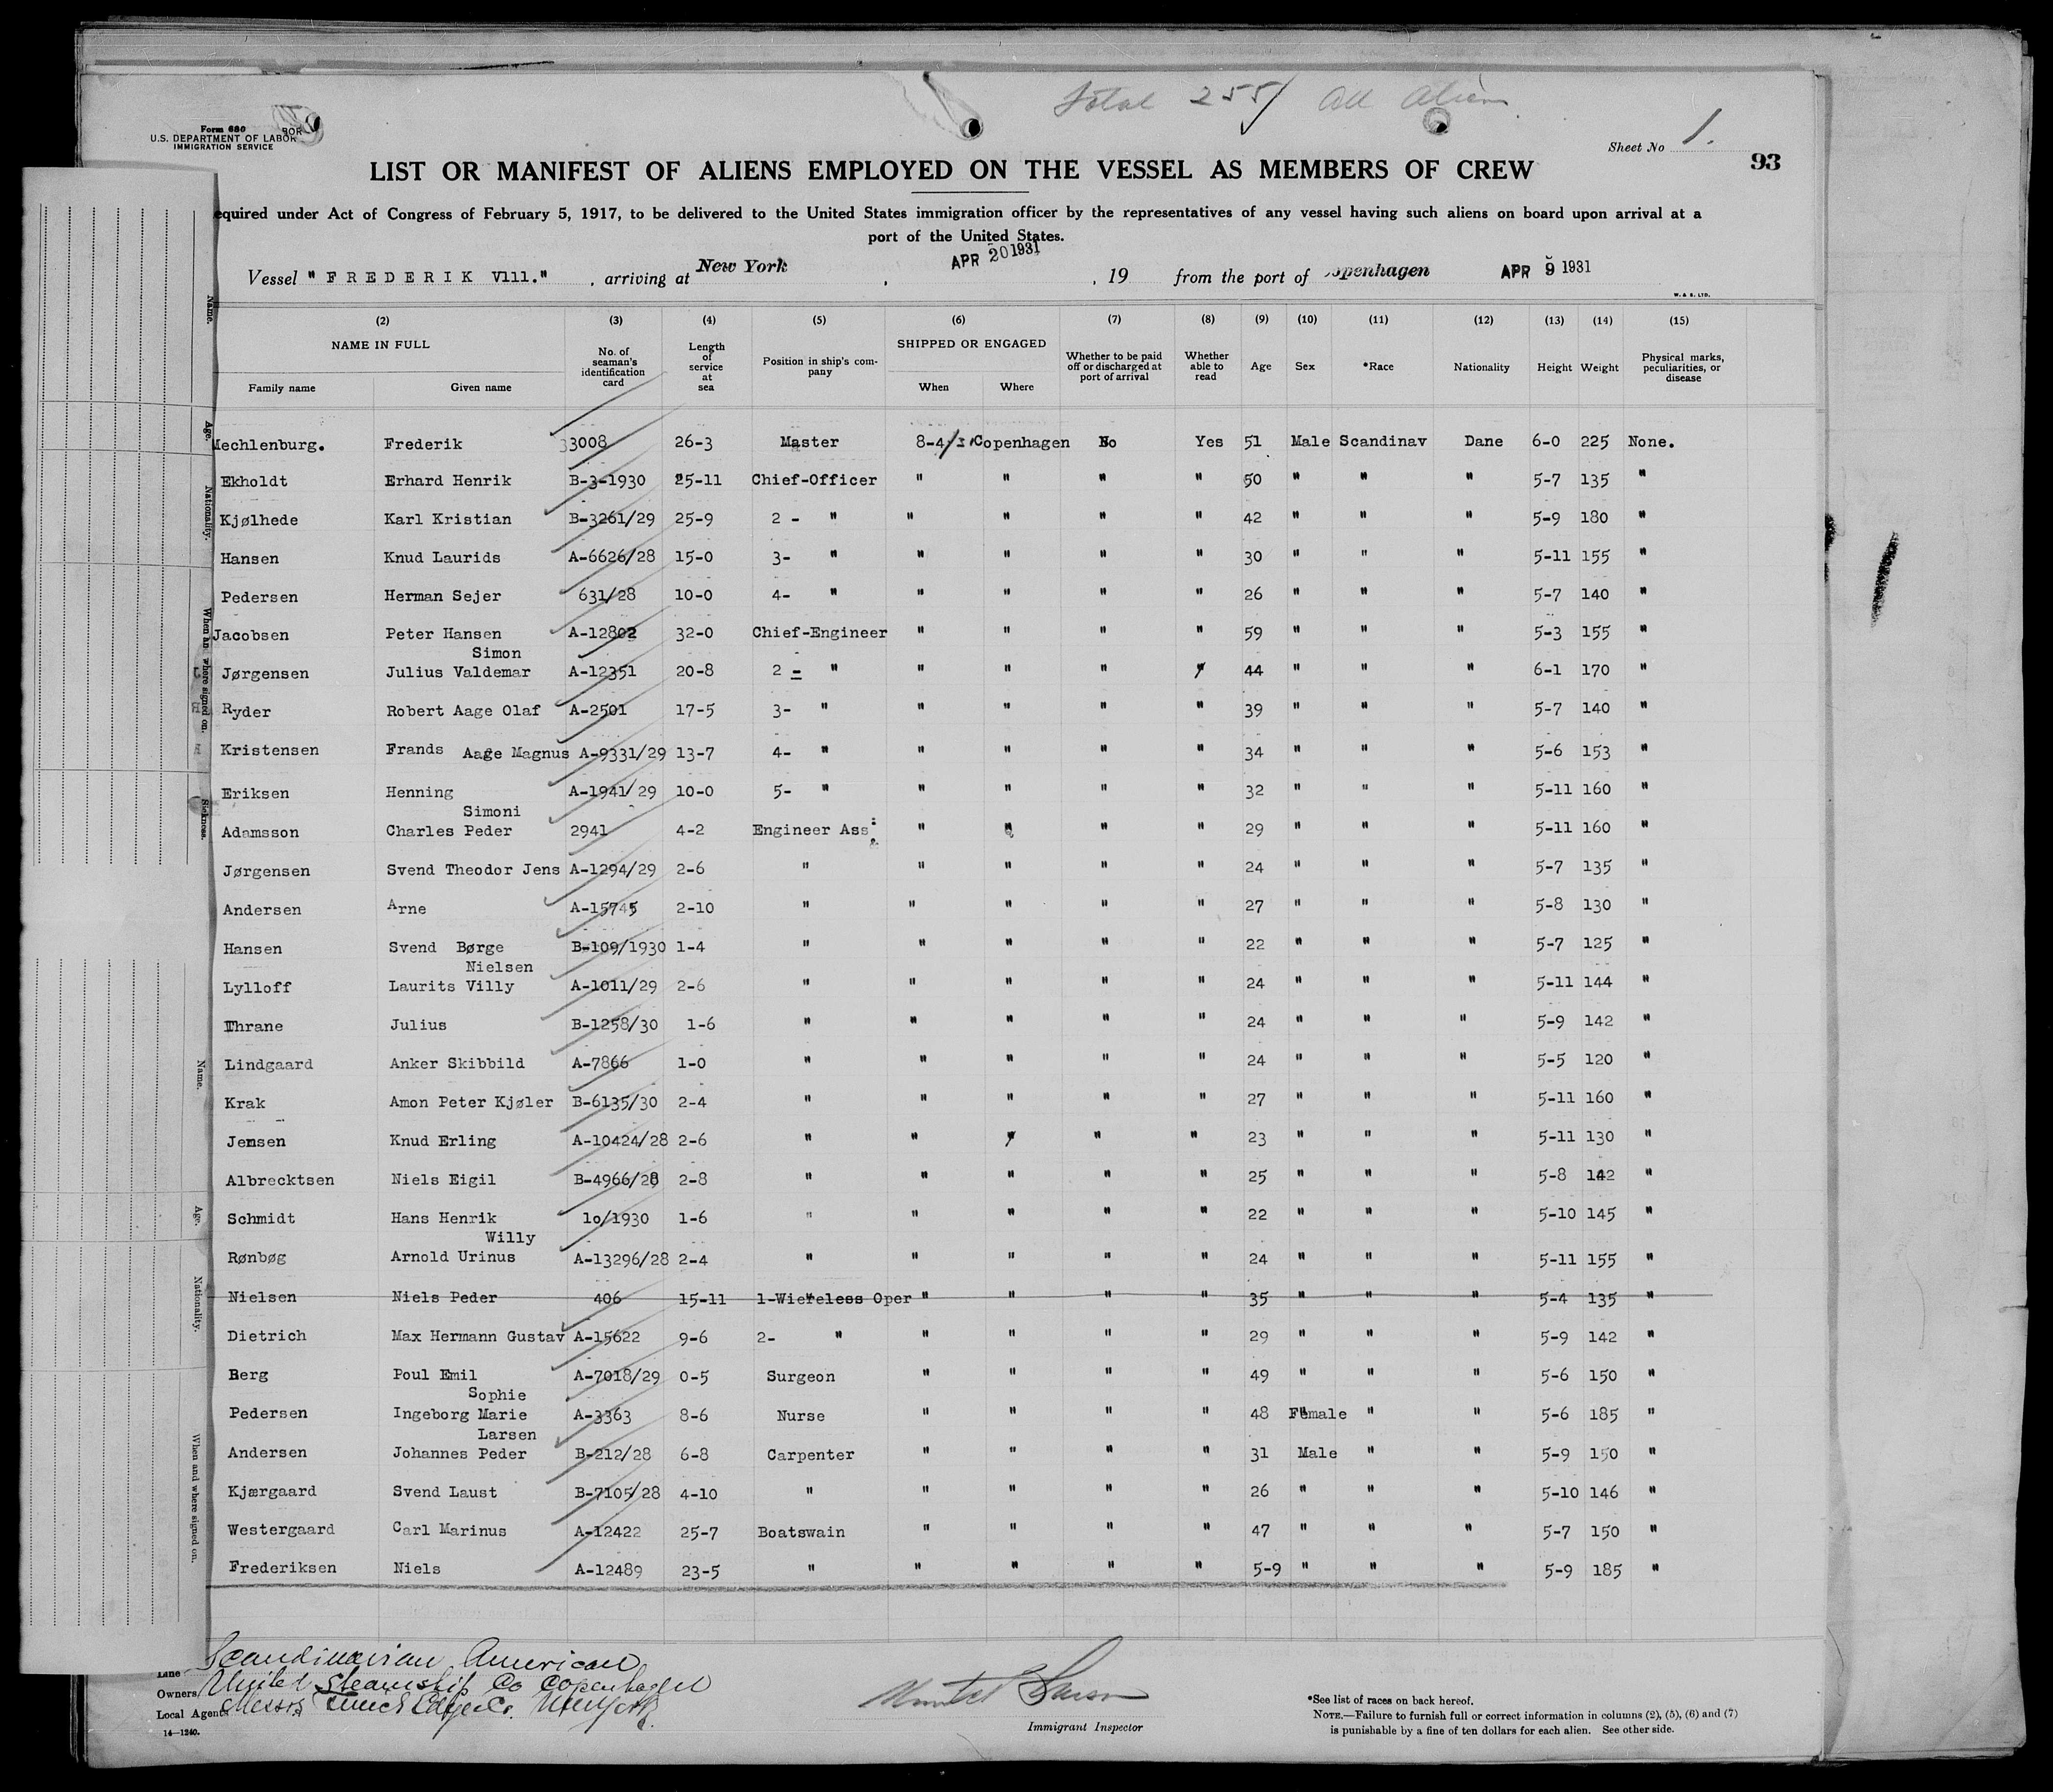 Total 255 All Aliens
Form 680
U.S. DEPARTMENT OF LABOR
IMMIGRATION SERVICE
Sheet No 1.
93
LIST OR MANIFEST OF ALIENS EMPLOYED ON THE VESSEL AS MEMBERS OF CREW
equired under Act of Congress of February 5, 1917, to be delivered to the United States immigration officer by the representatives of any vessel having such aliens on board upon arrival at a
port of the United States.
Vessel "FREDERIK Vlll." , arriving at New York , APR 20 1931 , 19 from the port of openhagen APR 9 1931
W. & S. LTD.
(2) (3) (4) (5) (6) (7) (8) (9) (10) (11) (12) (13) (14) (15)
NAME IN FULL No. of seaman's identification card Length of service at sea Position in ship's company SHIPPED OR ENGAGED Whether to be paid off or discharged at port of arrival Whether able to read Age Sex *Race Nationality Height Weight Physical marks, peculiarities, or disease
Family name Given name When Where
Mechlenburg. Frederik 33008 26-3 Master 8-4/31 Copenhagen No Yes 51 Male Scandinav Dane 6-0 225 None.
Ekholdt Erhard Henrik B-3-1930 25-11 Chief-Officer " " " " 50 " " " 5-7 135 "
Kjølhede Karl Kristian B-3261/29 25-9 2 - " " " " " 42 " " " 5-9 180 "
Hansen Knud Laurids A-6626/28 15-0 3- " " " " " 30 " " " 5-11 155 "
Pedersen Herman Sejer 631/28 10-0 4- " " " " " 26 " " " 5-7 140 "
Jacobsen Peter Hansen A-12802 32-0 Chief-Engineer " " " " 59 " " " 5-3 155 "
Simon
Jørgensen Julius Valdemar A-12351 20-8 2 - " " " " " 44 " " " 6-1 170 "
Ryder Robert Aage Olaf A-2501 17-5 3- " " " " " 39 " " " 5-7 140 "
Kristensen Frands Aage Magnus A-9331/29 13-7 4- " " " " " 34 " " " 5-6 153 "
Eriksen Henning A-1941/29 10-0 5- " " " " " 32 " " " 5-11 160 "
Simoni
Adamsson Charles Peder 2941 4-2 Engineer Ass: " " " " 29 " " " 5-11 160 "
Jørgensen Svend Theodor Jens A-1294/29 2-6 " " " " " 24 " " " 5-7 135 "
Andersen Arne A-15745 2-10 " " " " " 27 " " " 5-8 130 "
Hansen Svend Børge B-109/1930 1-4 " " " " " 22 " " " 5-7 125 "
Nielsen
Lylloff Laurits Villy A-1011/29 2-6 " " " " " 24 " " " 5-11 144 "
Thrane Julius B-1258/30 1-6 " " " " " 24 " " " 5-9 142 "
Lindgaard Anker Skibbild A-7866 1-0 " " " " " 24 " " " 5-5 120 "
Krak Amon Peter Kjøler B-6135/30 2-4 " " " " " 27 " " " 5-11 160 "
Jensen Knud Erling A-10424/28 2-6 " " " " " 23 " " " 5-11 130 "
Albrecktsen Niels Eigil B-4966/28 2-8 " " " " " 25 " " " 5-8 142 "
Schmidt Hans Henrik 10/1930 1-6 " " " " " 22 " " " 5-10 145 "
Willy
Rønbøg Arnold Urinus A-13296/28 2-4 " " " " " 24 " " " 5-11 155 "
Nielsen Niels Peder 406 15-11 1-Wiereless Oper " " " " 35 " " " 5-4 135 "
Dietrich Max Hermann Gustav A-15622 9-6 2- " " " " " 29 " " " 5-9 142 "
Berg Poul Emil A-7018/29 0-5 Surgeon " " " " 49 " " " 5-6 150 "
Sophie
Pedersen Ingeborg Marie A-3363 8-6 Nurse " " " " 48 Female " " 5-6 185 "
Larsen
Andersen Johannes Peder B-212/28 6-8 Carpenter " " " " 31 Male " " 5-9 150 "
Kjærgaard Svend Laust B-7105/28 4-10 " " " " " 26 " " " 5-10 146 "
Westergaard Carl Marinus A-12422 25-7 Boatswain " " " " 47 " " " 5-7 150 "
Frederiksen Niels A-12489 23-5 " " " " " 5-9 " " " 5-9 185 "
Line Scandinavian American
Owners United Steamship Co Copenhagen
Local Agents Messrs New York
14—1240.
Immigrant Inspector
*See list of races on back hereof.
NOTE.—Failure to furnish full or correct information in columns (2), (5), (6) and (7)
is punishable by a fine of ten dollars for each alien. See other side.
Name.
Age.
Nationality.
When and where signed on.
Sickness.
Name.
Age.
Nationality.
When and where signed on.